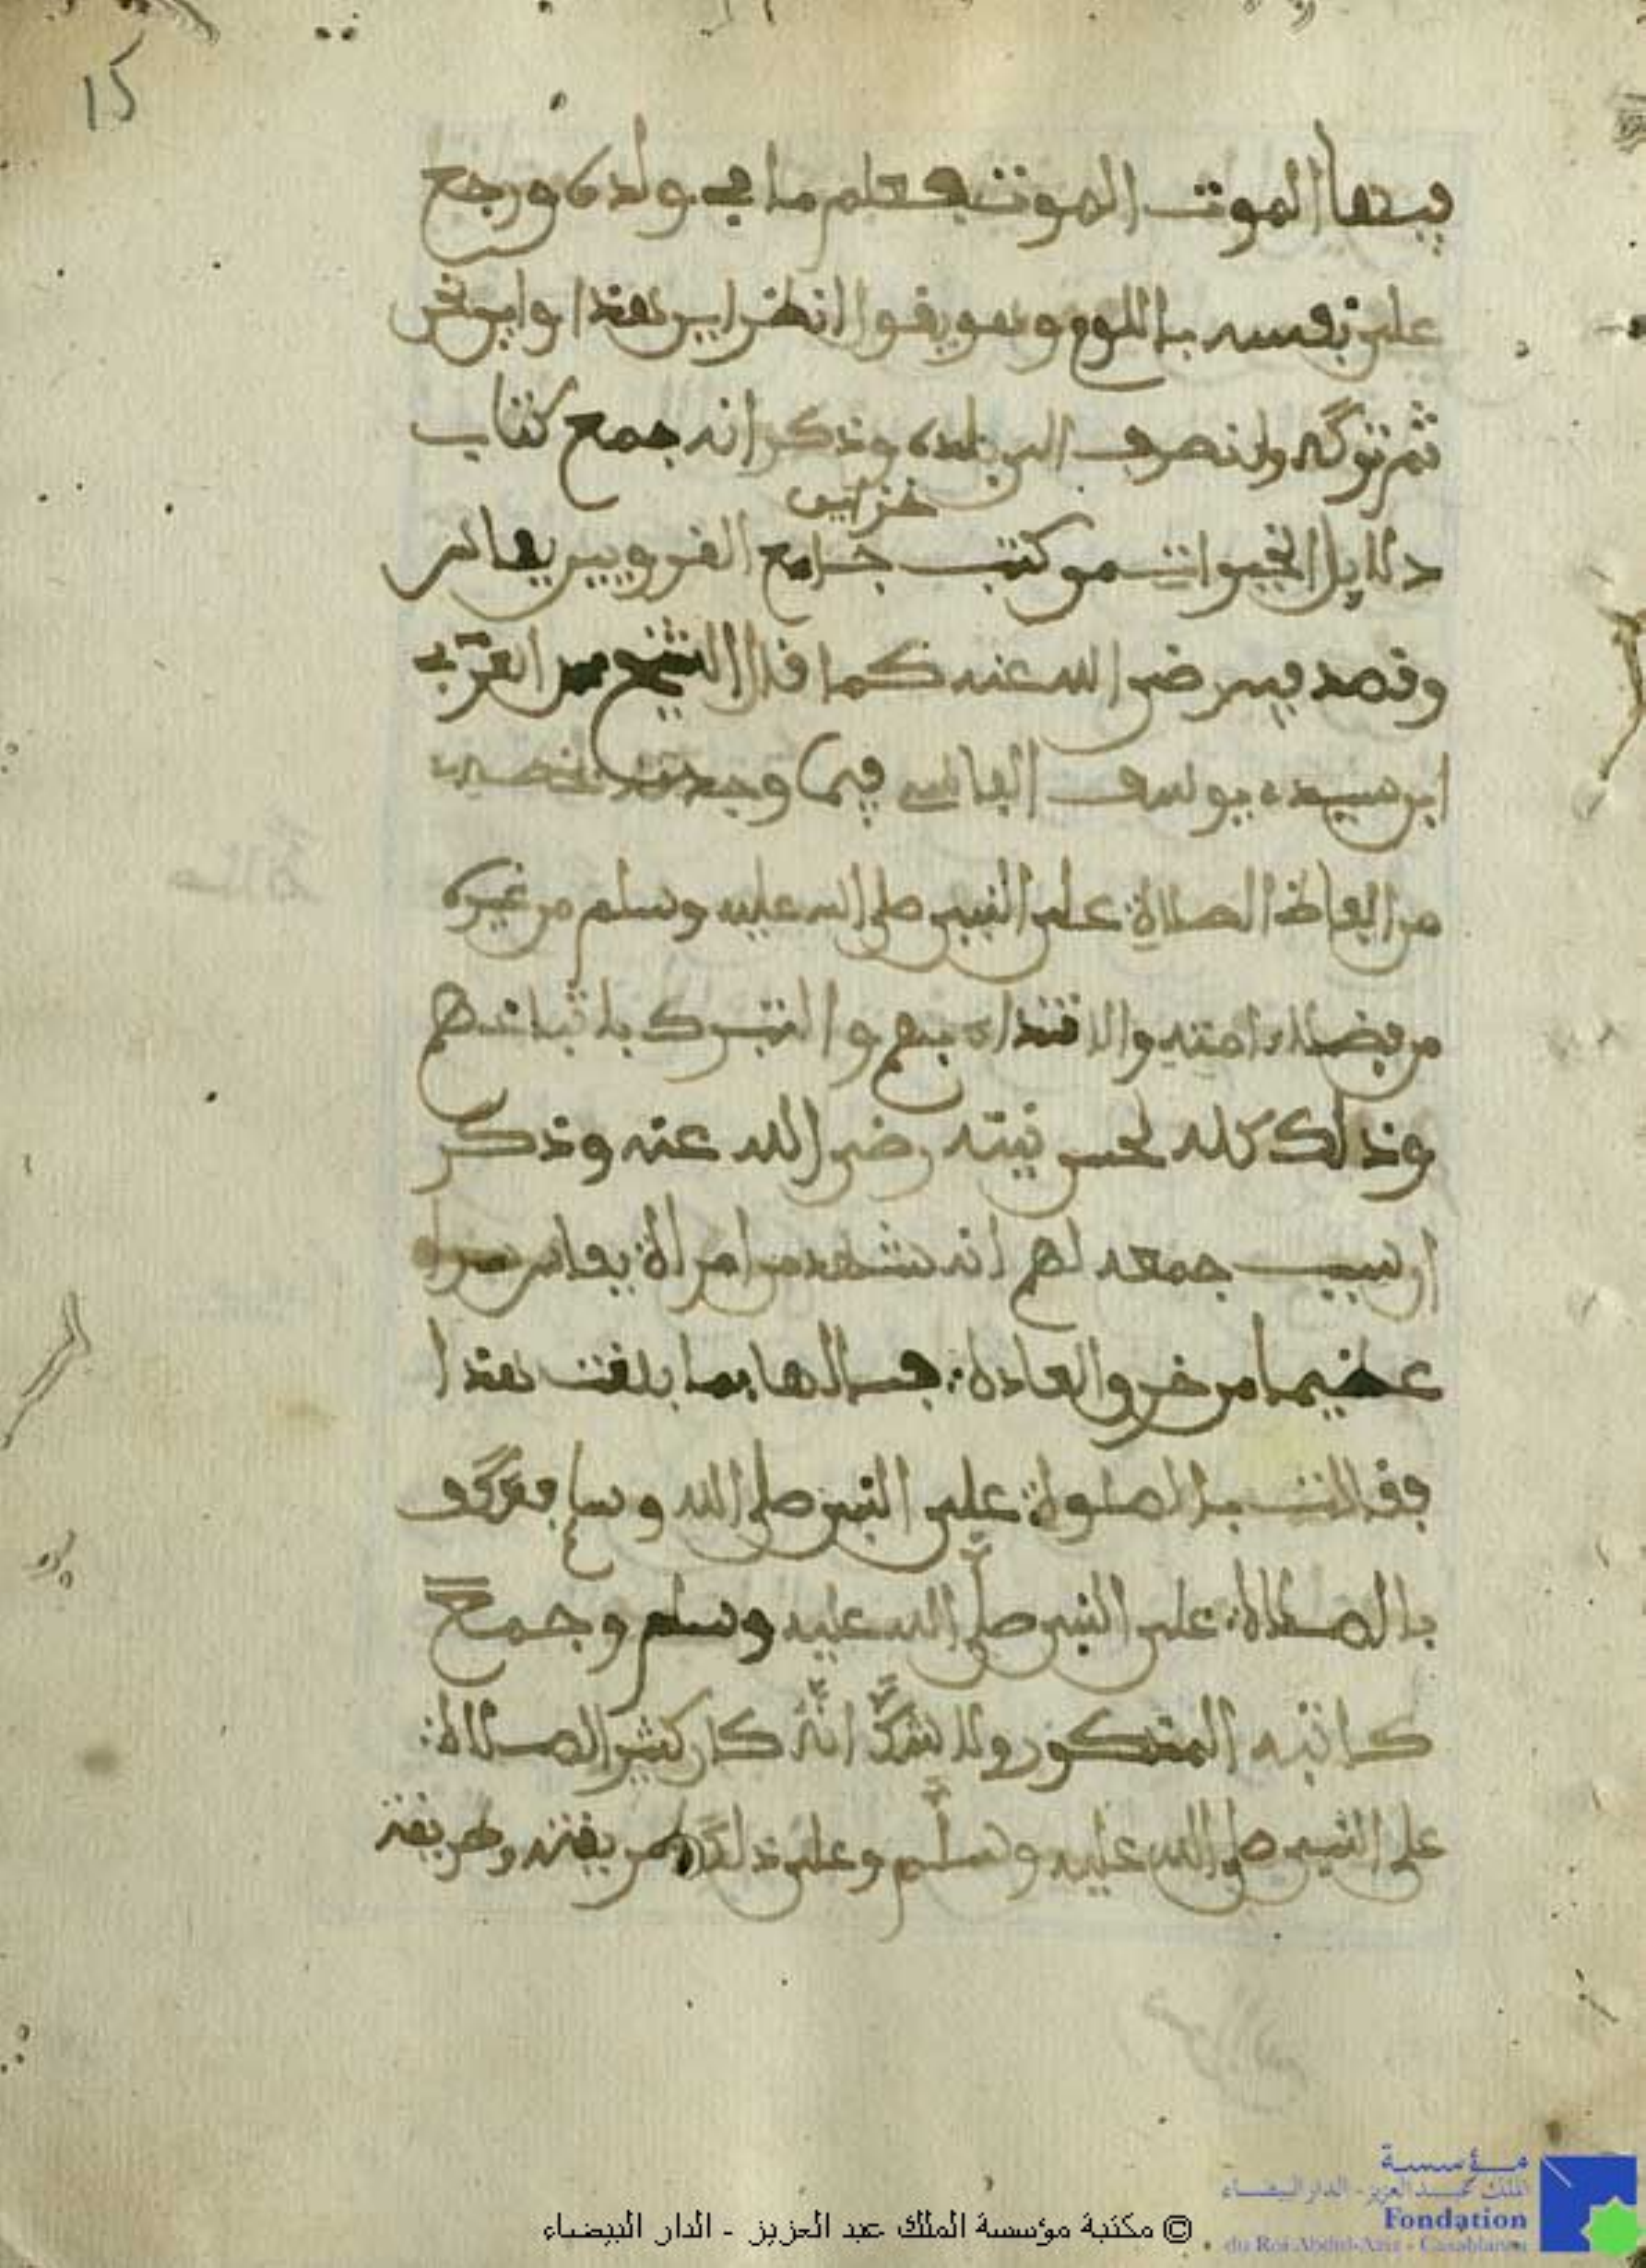 15
فيها الموت الموت فعلم ما في ولده ورجع
على نفسه باللوم وهو يقول انظر اين هذا واين نحن
ثم تركه وانصرف الى بلده وذكر انه جمع كتاب
خزاين
دلايل الخيرات من كتب جامع القرويين بفاس
وقصد فيه رضي الله عنه كما قال الشيخ العربي
ابن سيدي يوسف الفاسي فيما وجدته بخطه
من الفاظ الصلاة على النبي صلى الله عليه وسلم من غيره
من فضلاء امته والاقتداء بهم والتبرك باتباعهم
وذلك كله لحسن نيته رضي الله عنه وذكر
ان سبب جمعه لهم انه شهد من امراة بفاس
عظيما من خرو العادة فسالها بما بلغت هذا
فقالت بالصلوة على النبي صلى الله وسلم
بالصلاة على النبي صلى الله عليه وسلم وجمع
كتابه المذكور ولا شك انه كان كثير الصلاة
على النبي صلى الله عليه وسلم وعلى ذلك طريقته وطريقة
مؤسسة
الملك عبد العزيز - الدار البيضاء
Fondation
du Roi Abdul-Aziz - Casablanca
© مكتبة مؤسسة الملك عبد العزيز - الدار البيضاء